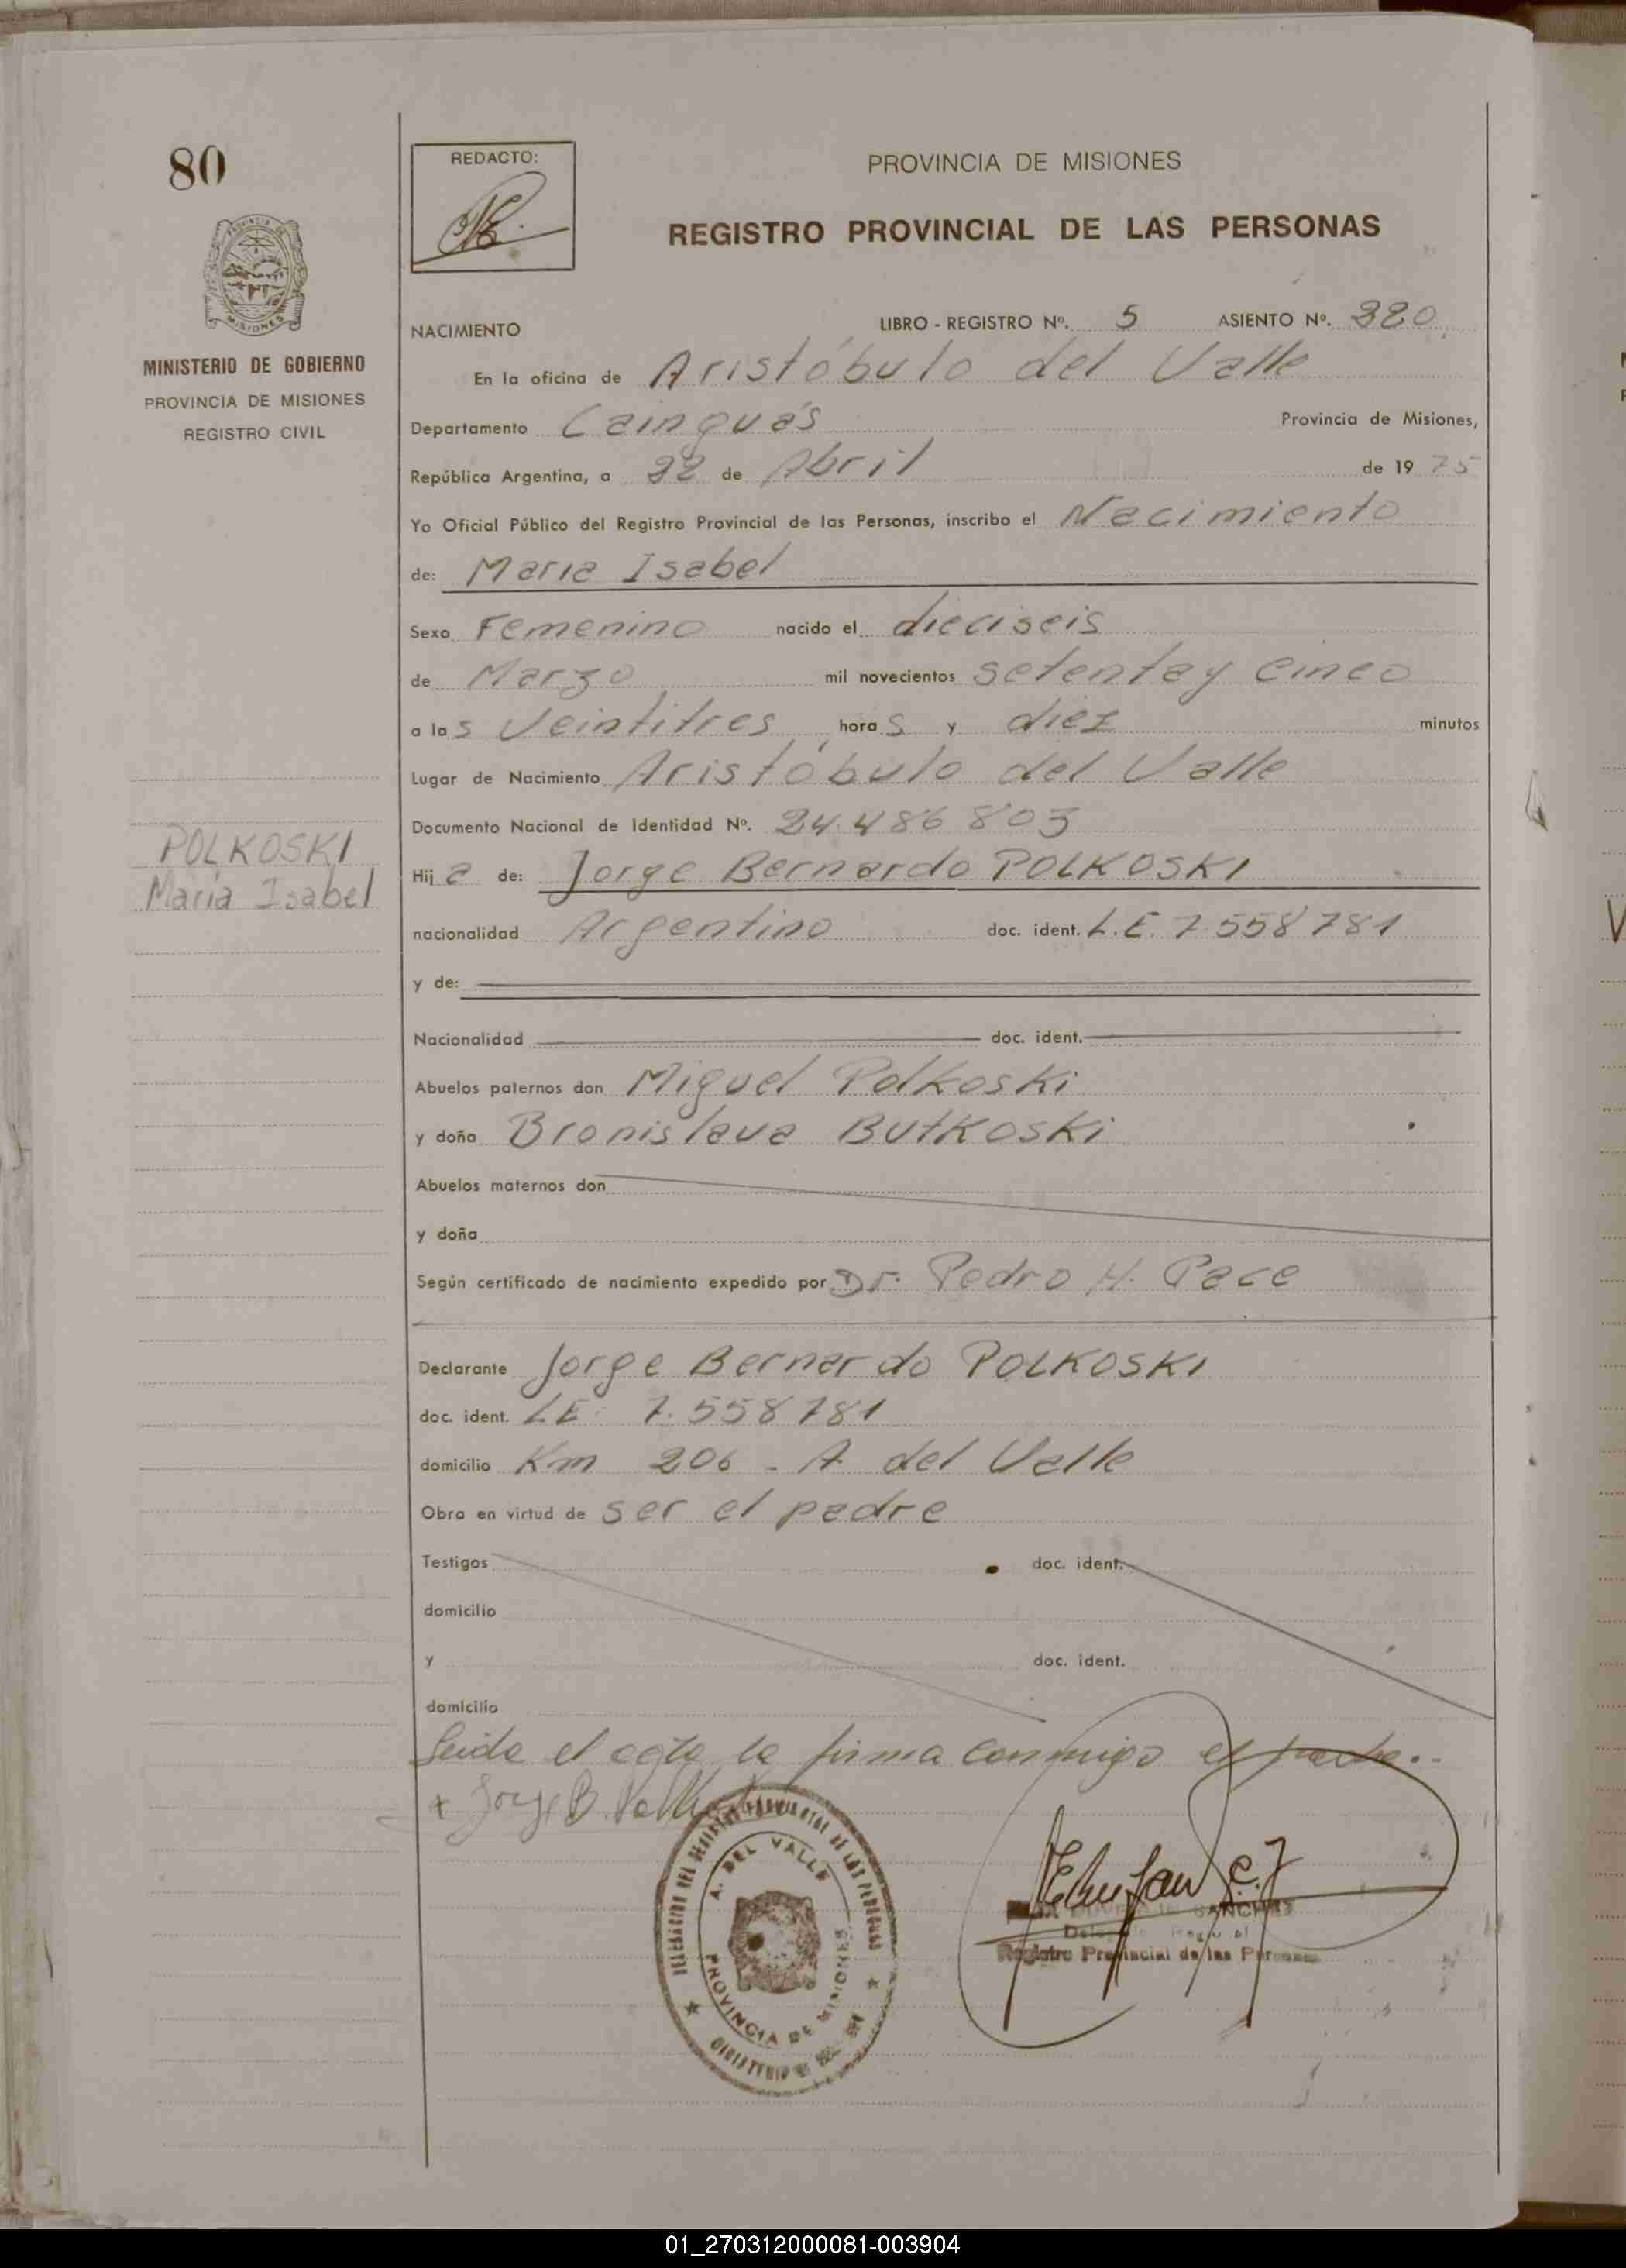 80
REDACTO:
PROVINCIA DE MISIONES
REGISTRO PROVINCIAL DE LAS PERSONAS
MISIONES
MINISTERIO DE GOBIERNO
PROVINCIA DE MISIONES
REGISTRO CIVIL
NACIMIENTO LIBRO - REGISTRO Nº. 5 ASIENTO Nº. 220
En la oficina de Aristóbulo del Valle
Departamento Cainguás Provincia de Misiones,
República Argentina, a 22 de Abril de 19 75
Yo Oficial Público del Registro Provincial de las Personas, inscribo el Nacimiento
de: Maria Isabel
Sexo Femenino nacido el dieciseis
de Marzo mil novecientos setenta y cinco
a las veintitres horas y diez minutos
Lugar de Nacimiento Aristóbulo del Valle
Documento Nacional de Identidad Nº. 24.486 803
POLKOSKI
Maria Isabel
Hija de: Jorge Bernardo POLKOSKI
nacionalidad Argentino doc. ident. L.E. 7.558 781
y de:
Nacionalidad doc. ident.
Abuelos paternos don Miguel Polkoski
y doña Bronislava Butkoski
Abuelos maternos don
y doña
Según certificado de nacimiento expedido por Dr. Pedro H. Pace
Declarante Jorge Bernardo POLKOSKI
doc. ident. LE: 7.558 781
domicilio Km 206 - A del Valle
Obra en virtud de ser el padre
Testigos doc. ident.
domicilio
y doc. ident.
domicilio
Leida el acta la firma conmigo el padre.-
+ Jorge B.
DELEGACION DEL REGISTRO PROVINCIAL DE LAS PERSONAS
A. DEL VALLE
PROVINCIA DE MISIONES
SANCHEZ
Registro Provincial de las Personas
01_270312000081-003904